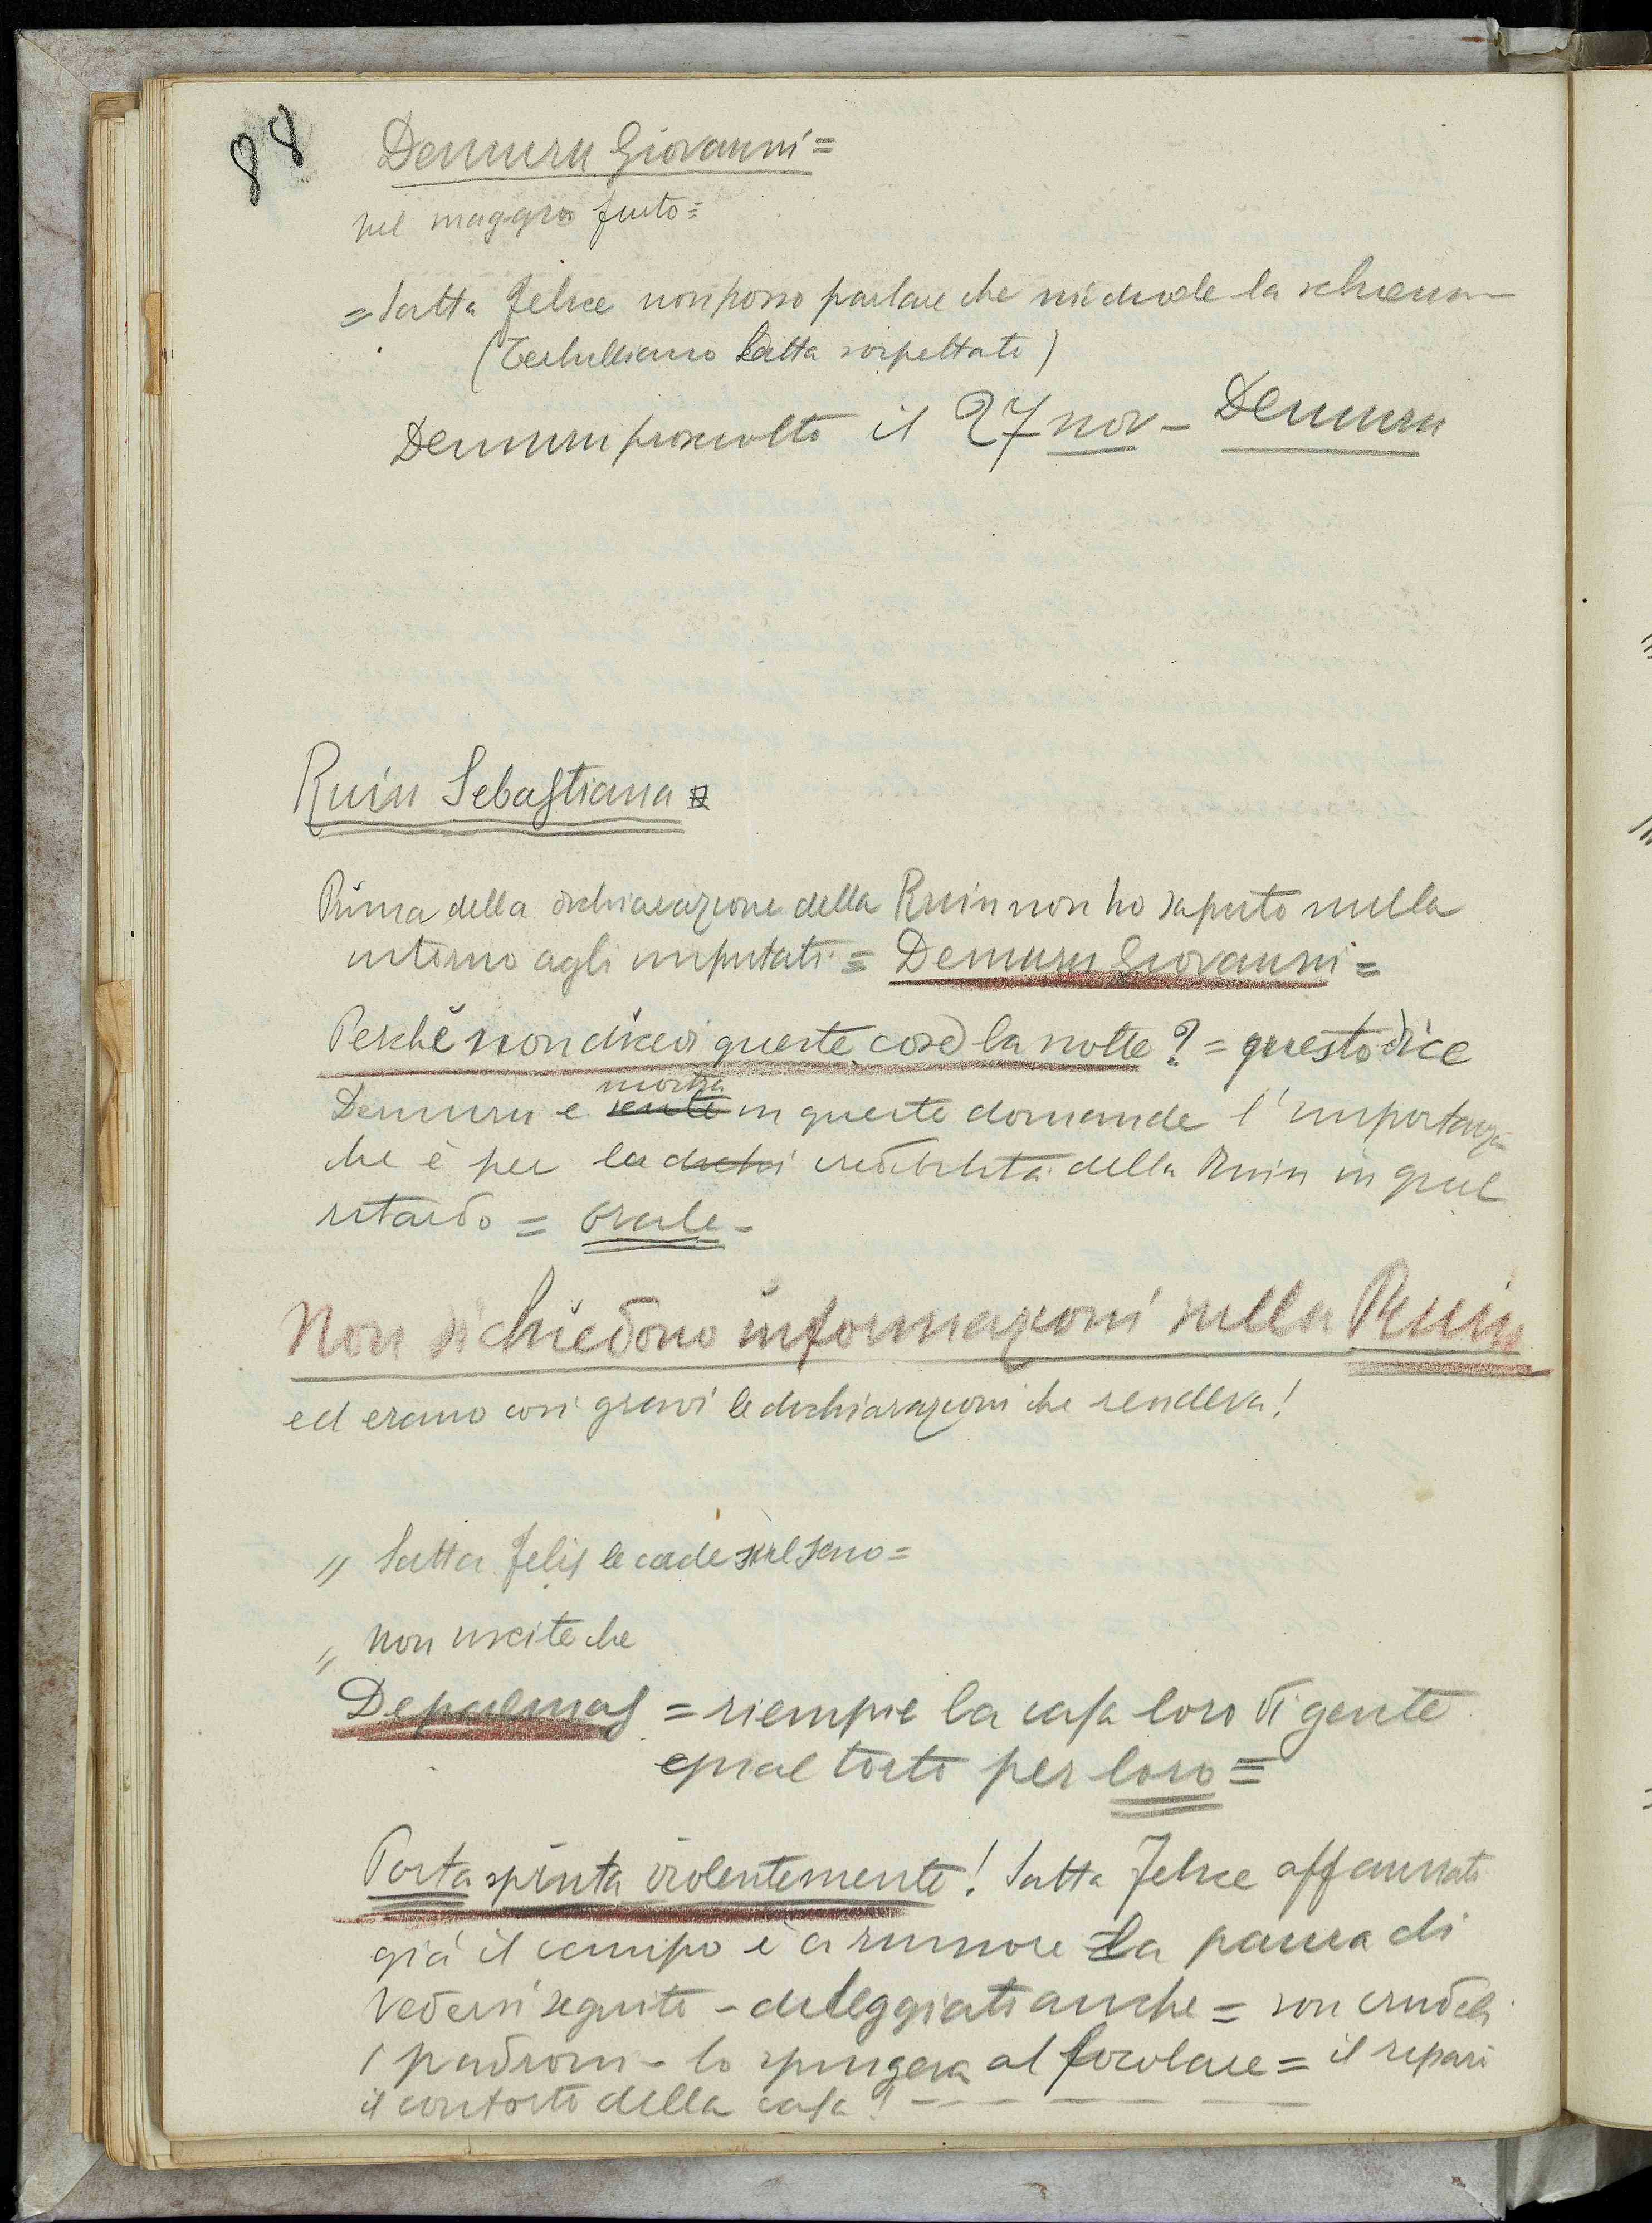 88
Demuru Giovanni =
nel maggio furto =
= Satta Felice non posso parlare che mi duole la schiena -
(Tertulliano Satta sospettato)
Demuru prosciolto il 27 nov - Demuru
Ruiu Sebastiana
Prima della dichiarazione della Ruiu non ho saputo nulla
intorno agli imputati = Demuru Giovanni =
Perché non dicevi queste cose la notte? = questo dice
mostra
Demuru e sente in queste domande l'importanza
che è per la dichi credibilità della Ruiu in quel
ritardo = Orale -
Non si chiedono informazioni sulla Ruiu
ed erano così gravi le dichiarazioni che rendeva!
" Satta Felix le cade sul seno =
" non uscite che
Depalmas = riempie la casa loro di gente
qual torto per loro =
Porta spinta violentemente! Satta Felice affannato
già il campo è a rumore - La paura di
vedersi seguito - dileggiati anche = son crudeli
i padroni - lo spingeva al focolare = il
il conforto della casa! - - - - -